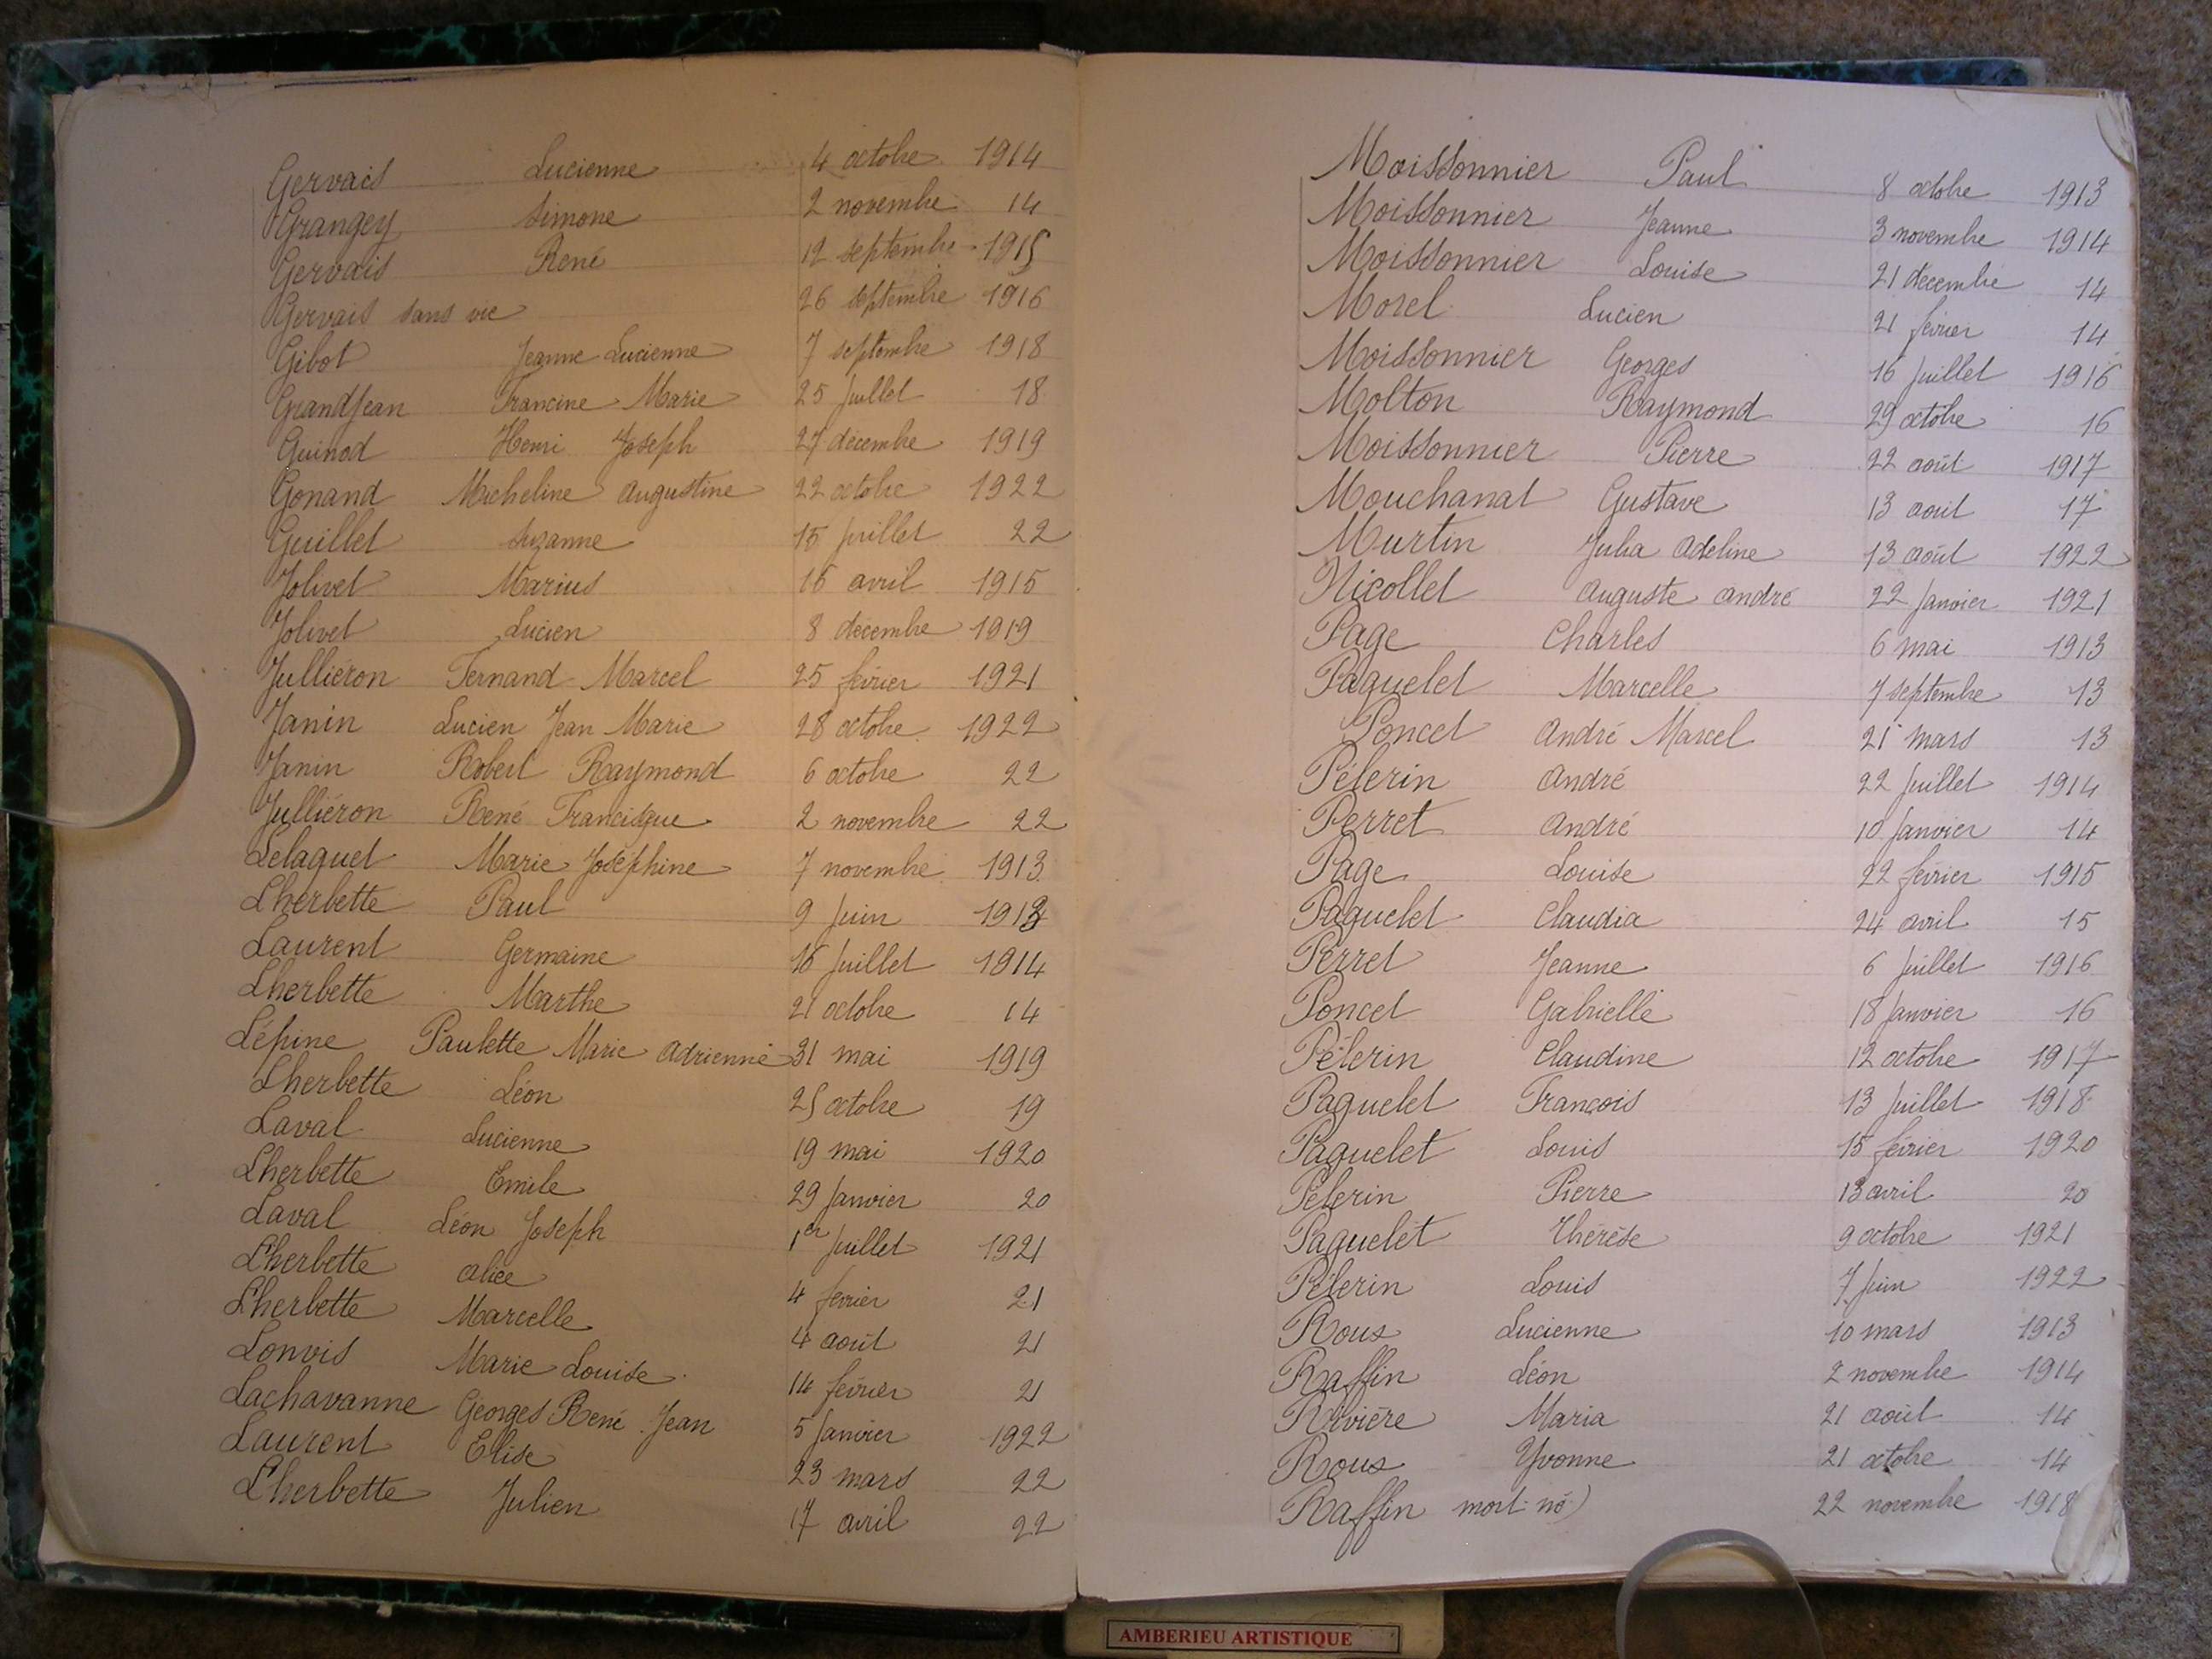 Gervais Lucienne 4 octobre 1914
Grangey Simone 2 novembre 14
Gervais René 12 septembre 1915
Gervais sans vie 26 septembre 1916
Gibot Jeanne Lucienne 7 septembre 1918
Grandjean Francine Marie 25 juillet 18
Guinod Henri Joseph 27 décembre 1919
Gonand Micheline Augustine 22 octobre 1922
Guillet Suzanne 15 juillet 22
Jolivet Marius 16 avril 1915
Jolivet Lucien 8 décembre 1919
Julliéron Fernand Marcel 25 février 1921
Janin Lucien Jean Marie 28 octobre 1922
Janin Robert Raymond 6 octobre 22
Julliéron René Francisque 2 novembre 22
Lelaquet Marie Joséphine 7 novembre 1913
Lherbette Paul 9 juin 1913
Laurent Germaine 16 juillet 1914
Lherbette Marthe 21 octobre 14
Lépine Paulette Marie Adrienne 31 mai 1919
Lherbette Léon 25 octobre 19
Laval Lucienne 19 mai 1920
Lherbette Emile 29 janvier 20
Laval Léon Joseph 1er juillet 1921
Lherbette Alice 4 février 21
Lherbette Marcelle 4 août 21
Lonvis Marie Louise 14 février 21
Lachavanne Georges René Jean 5 janvier 1922
Laurent Elise 23 mars 22
Lherbette Julien 17 avril 22
Moissonnier Paul 8 octobre 1913
Moissonnier Jeanne 3 novembre 1914
Moissonnier Louise 21 décembre 14
Morel Lucien 21 février 14
Moissonnier Georges 16 juillet 1916
Molton Raymond 29 octobre 16
Moissonnier Pierre 22 août 1917
Mouchanat Gustave 13 août 17
Murtin Julia Adeline 13 août 1922
Nicollet Auguste André 22 janvier 1921
Page Charles 6 mai 1913
Paquelet Marcelle 7 septembre 13
Poncet André Marcel 21 mars 13
Pélerin André 22 juillet 1914
Perret André 10 janvier 14
Page Louise 22 février 1915
Paquelet Claudia 24 avril 15
Perret Jeanne 6 juillet 1916
Poncet Gabrielle 18 janvier 16
Pélerin Claudine 12 octobre 1917
Paquelet François 13 juillet 1918
Paquelet Louis 15 février 1920
Pélerin Pierre 13 avril 20
Paquelet Thérèse 9 octobre 1921
Pélerin Louis 7 juin 1922
Roux Lucienne 10 mars 1913
Raffin Léon 2 novembre 1914
Rivière Maria 21 août 14
Roux Yvonne 21 octobre 14
Raffin mort-né) 22 novembre 1918
AMBERIEU ARTISTIQUE